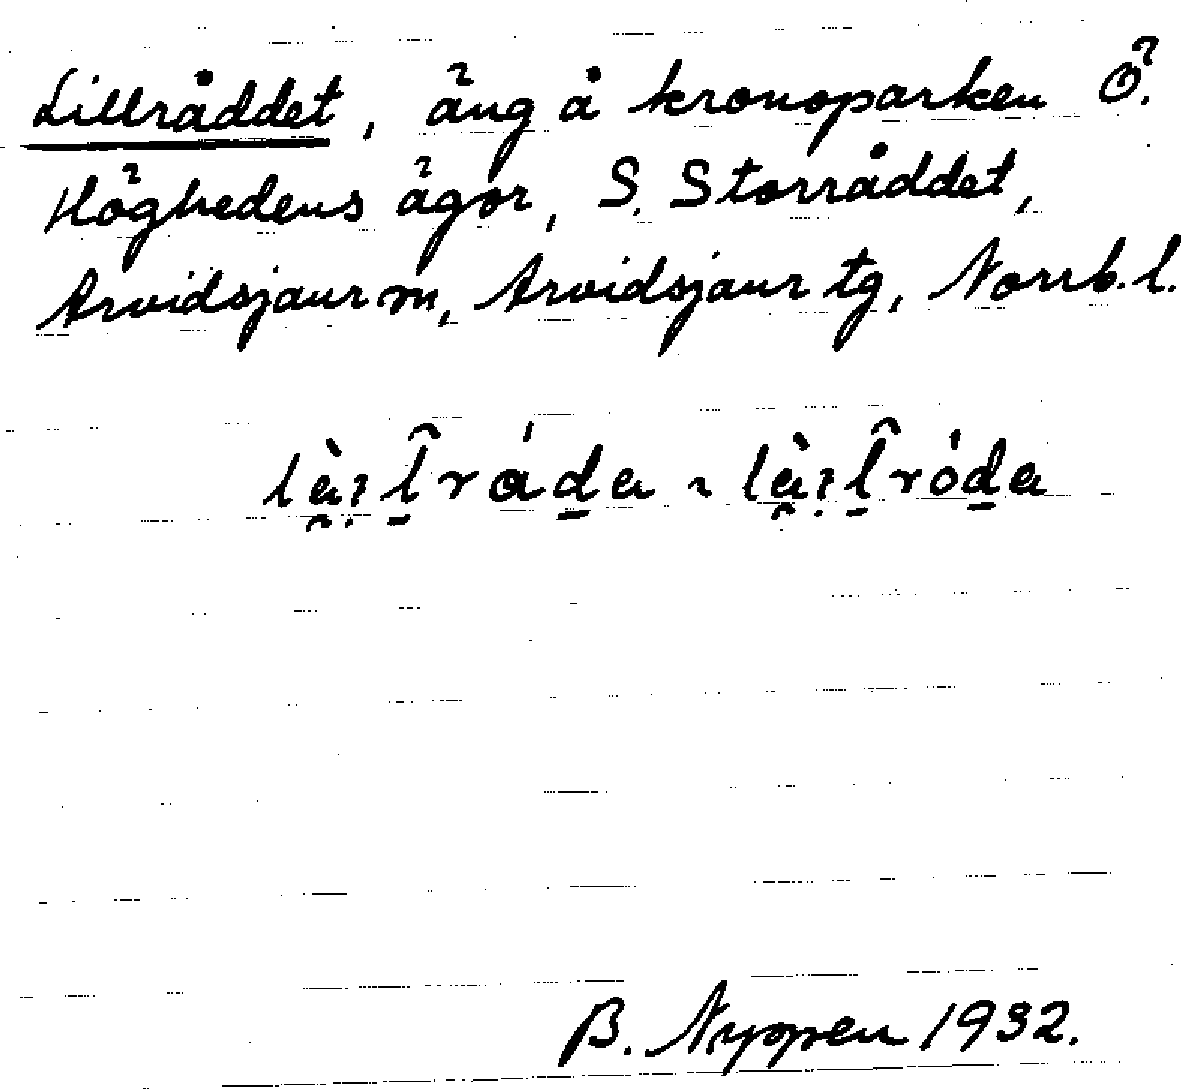 Lillråddet, äng å kronoparken Ö.
Höghedens ägor, S. Storråddet,
Arvidsjaur sn, Arvidsjaur tg, Norrb. l.
B. Nyppen 1932.